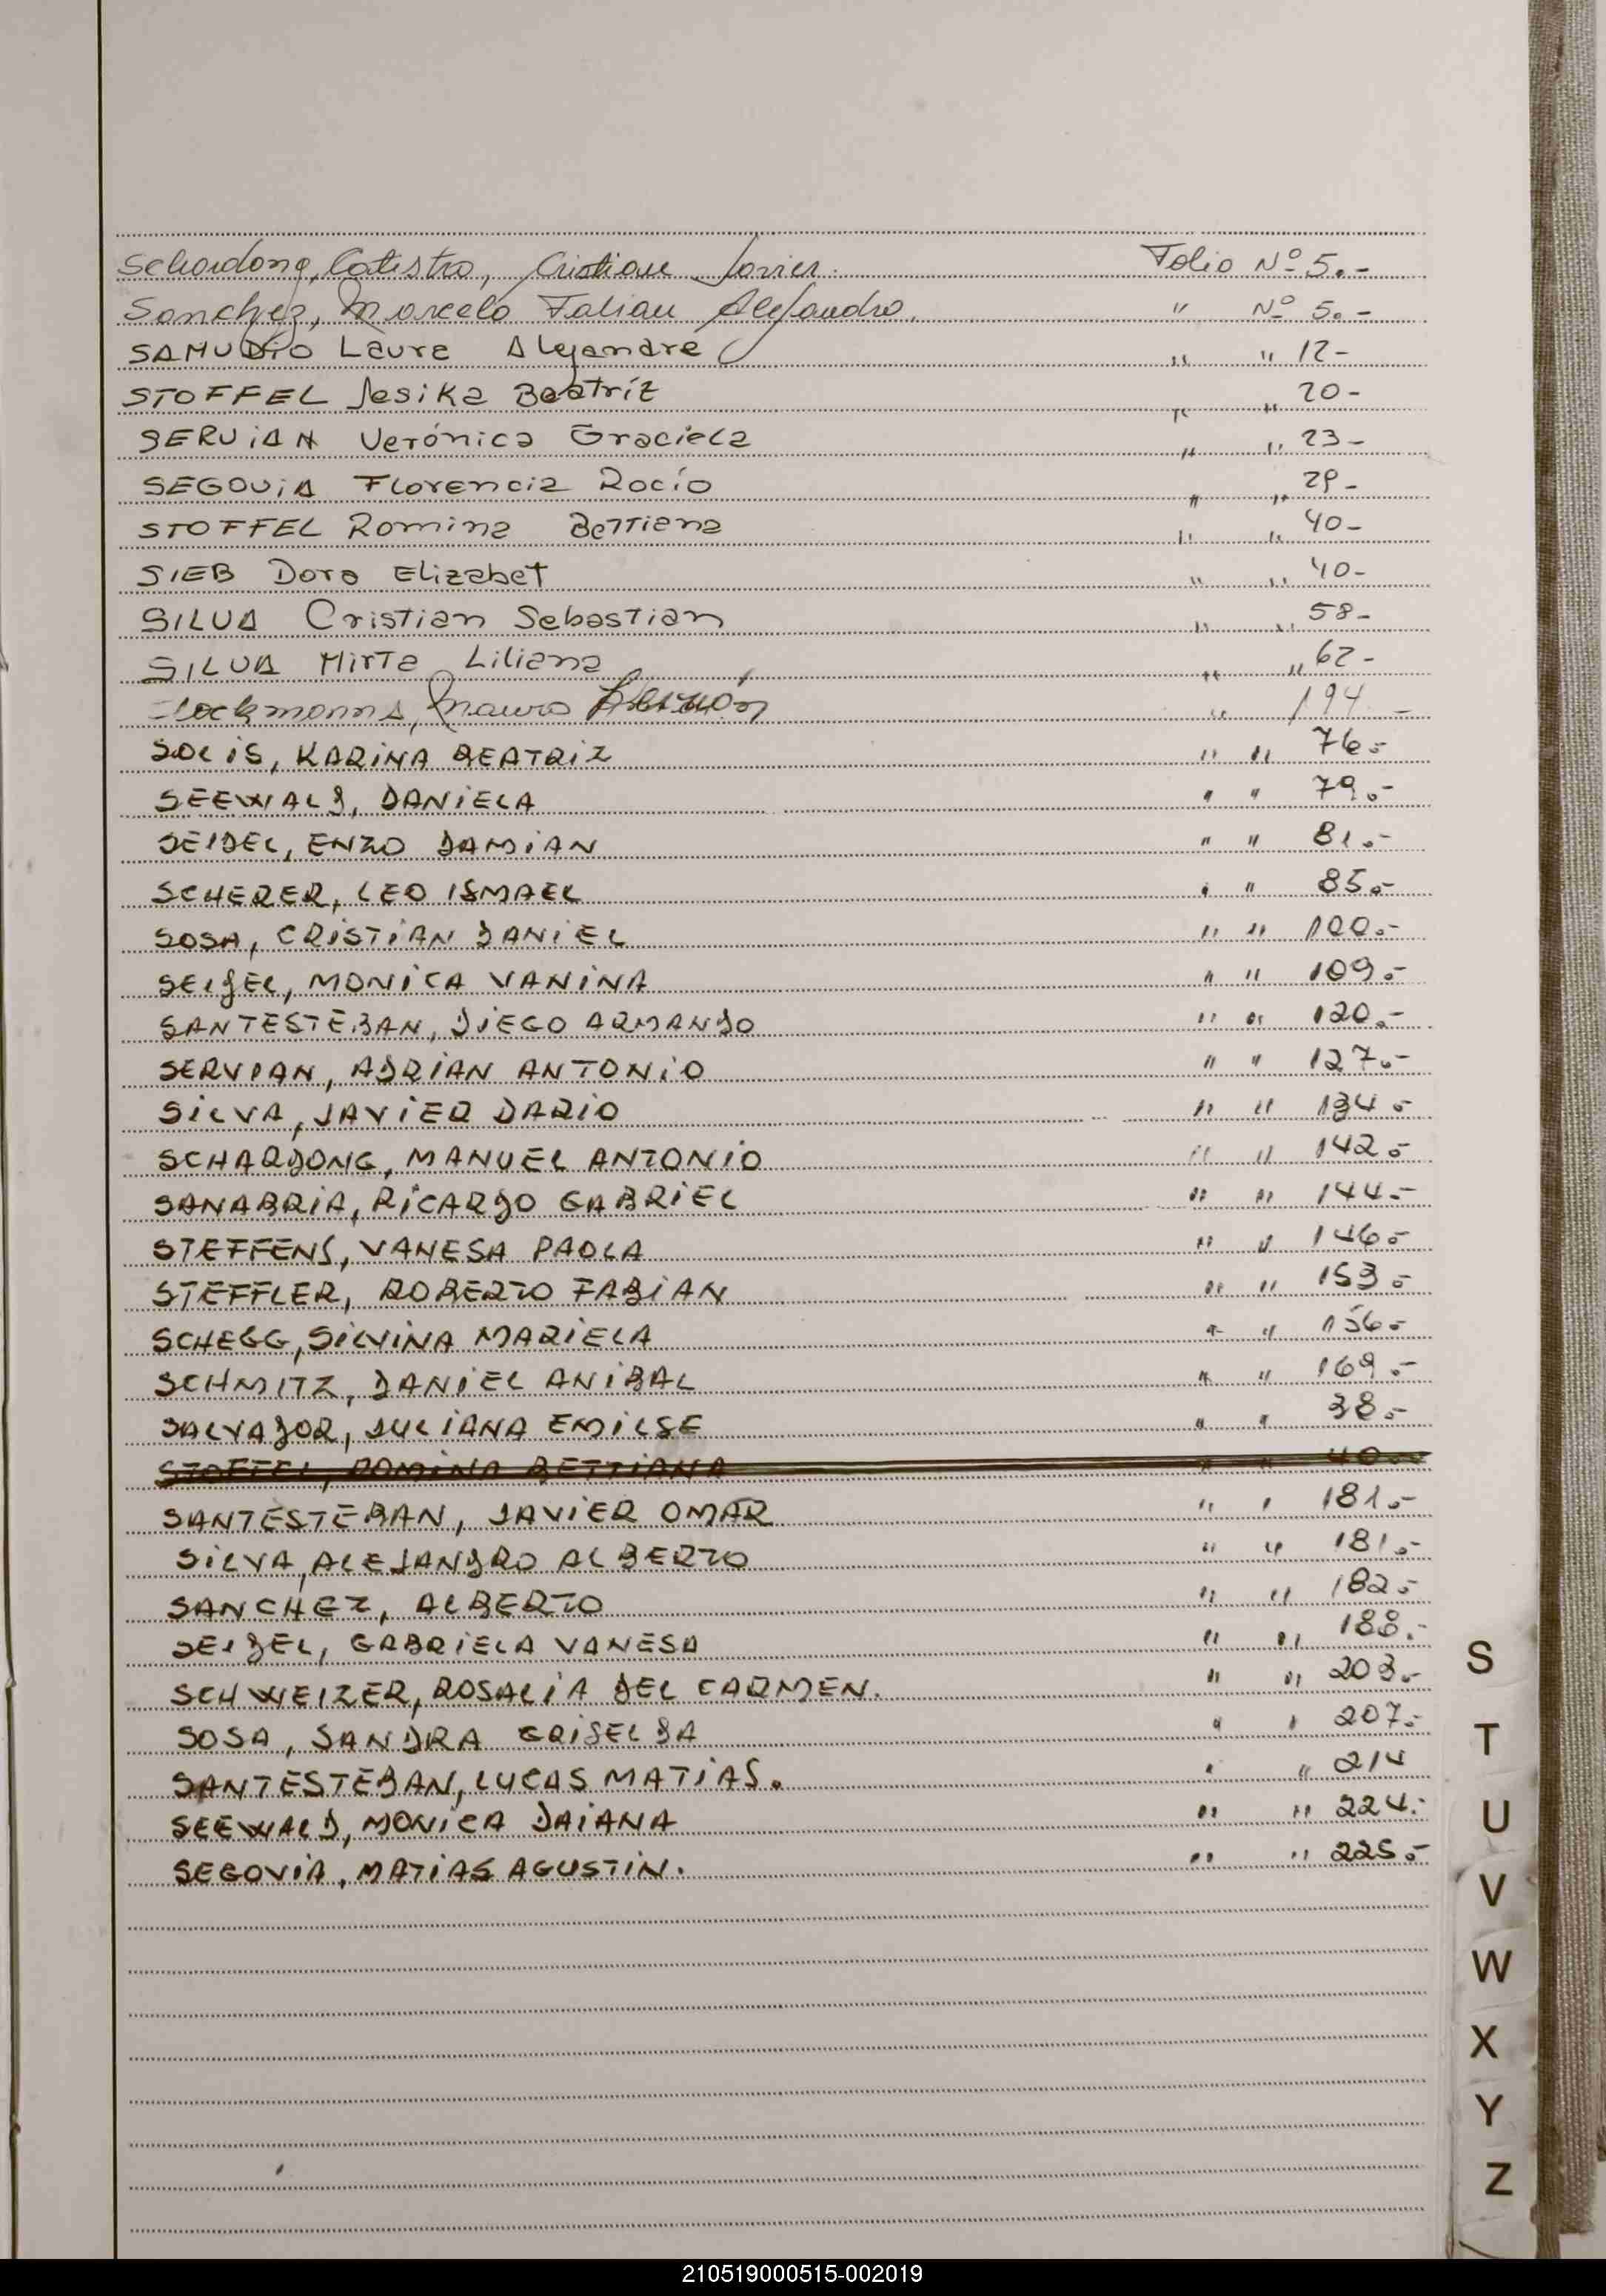 Schardong, Catistro, Cristian Javier. Folio Nº 5.-
Sanchez, Marcelo Fabian Alejandro. " Nº 5.-
SAMUDIO Laura Alejandra " " 12-
STOFFEL Jesika Beatríz " " 20-
SERVIAN Verónica Graciela " " 23-
SEGOVIA Florencia Rocío " " 29-
STOFFEL Romina Bettiana " " 40-
SIEB Dora Elizabet " " 40-
SILVA Cristian Sebastian " " 58-
SILVA Mirta Liliana " " 62-
Mauro Hernán " 194 -
SOLIS, KARINA BEATRIZ " " 76.-
SEEWALD, DANIELA " " 79.-
SEIDEL, ENZO DAMIAN " " 81.-
SCHERER, LEO ISMAEL " " 85.-
SOSA, CRISTIAN DANIEL " " 100.-
SEIDEL, MONICA VANINA " " 109.-
SANTESTEBAN, DIEGO ARMANDO " " 120.-
SERVIAN, ADRIAN ANTONIO " " 127.-
SILVA, JAVIER DARIO " " 134.-
SCHARDONG, MANUEL ANTONIO " " 142.-
SANABRIA, RICARDO GABRIEL " " 144.-
STEFFENS, VANESA PAOLA " " 146.-
STEFFLER, ROBERTO FABIAN " " 153.-
SCHEGG, SILVINA MARIELA " " 156.-
SCHMITZ, DANIEL ANIBAL " " 169.-
SALVADOR, JULIANA EMILSE " " 38.-
STOFFEL, ROMINA BETTIANA " " 40.-
SANTESTEBAN, JAVIER OMAR " " 181.-
SILVA, ALEJANDRO ALBERTO " " 181.-
SANCHEZ, ALBERTO " " 182.-
SEIDEL, GABRIELA VANESA " " 188.-
SCHWEIZER, ROSALIA DEL CARMEN. " " 203.-
SOSA, SANDRA GRISELDA " " 207.-
SANTESTEBAN, LUCAS MATIAS. " " 214
SEEWALD, MONICA DAIANA " " 224.-
SEGOVIA, MATIAS AGUSTIN. " " 225.-
S
T
U
V
W
X
Y
Z
210519000515-002019